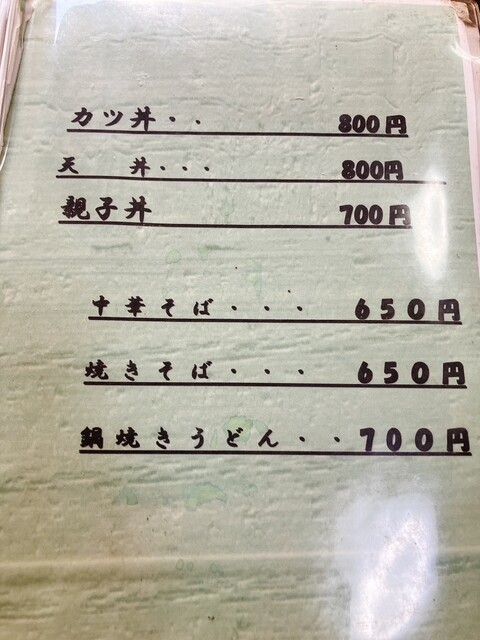 カツ丼・・ 800円
天 丼・・・ 800円
親子丼 700円
中華そば・・・ 650円
焼きそば・・・ 650円
鍋焼きうどん・・ 700円